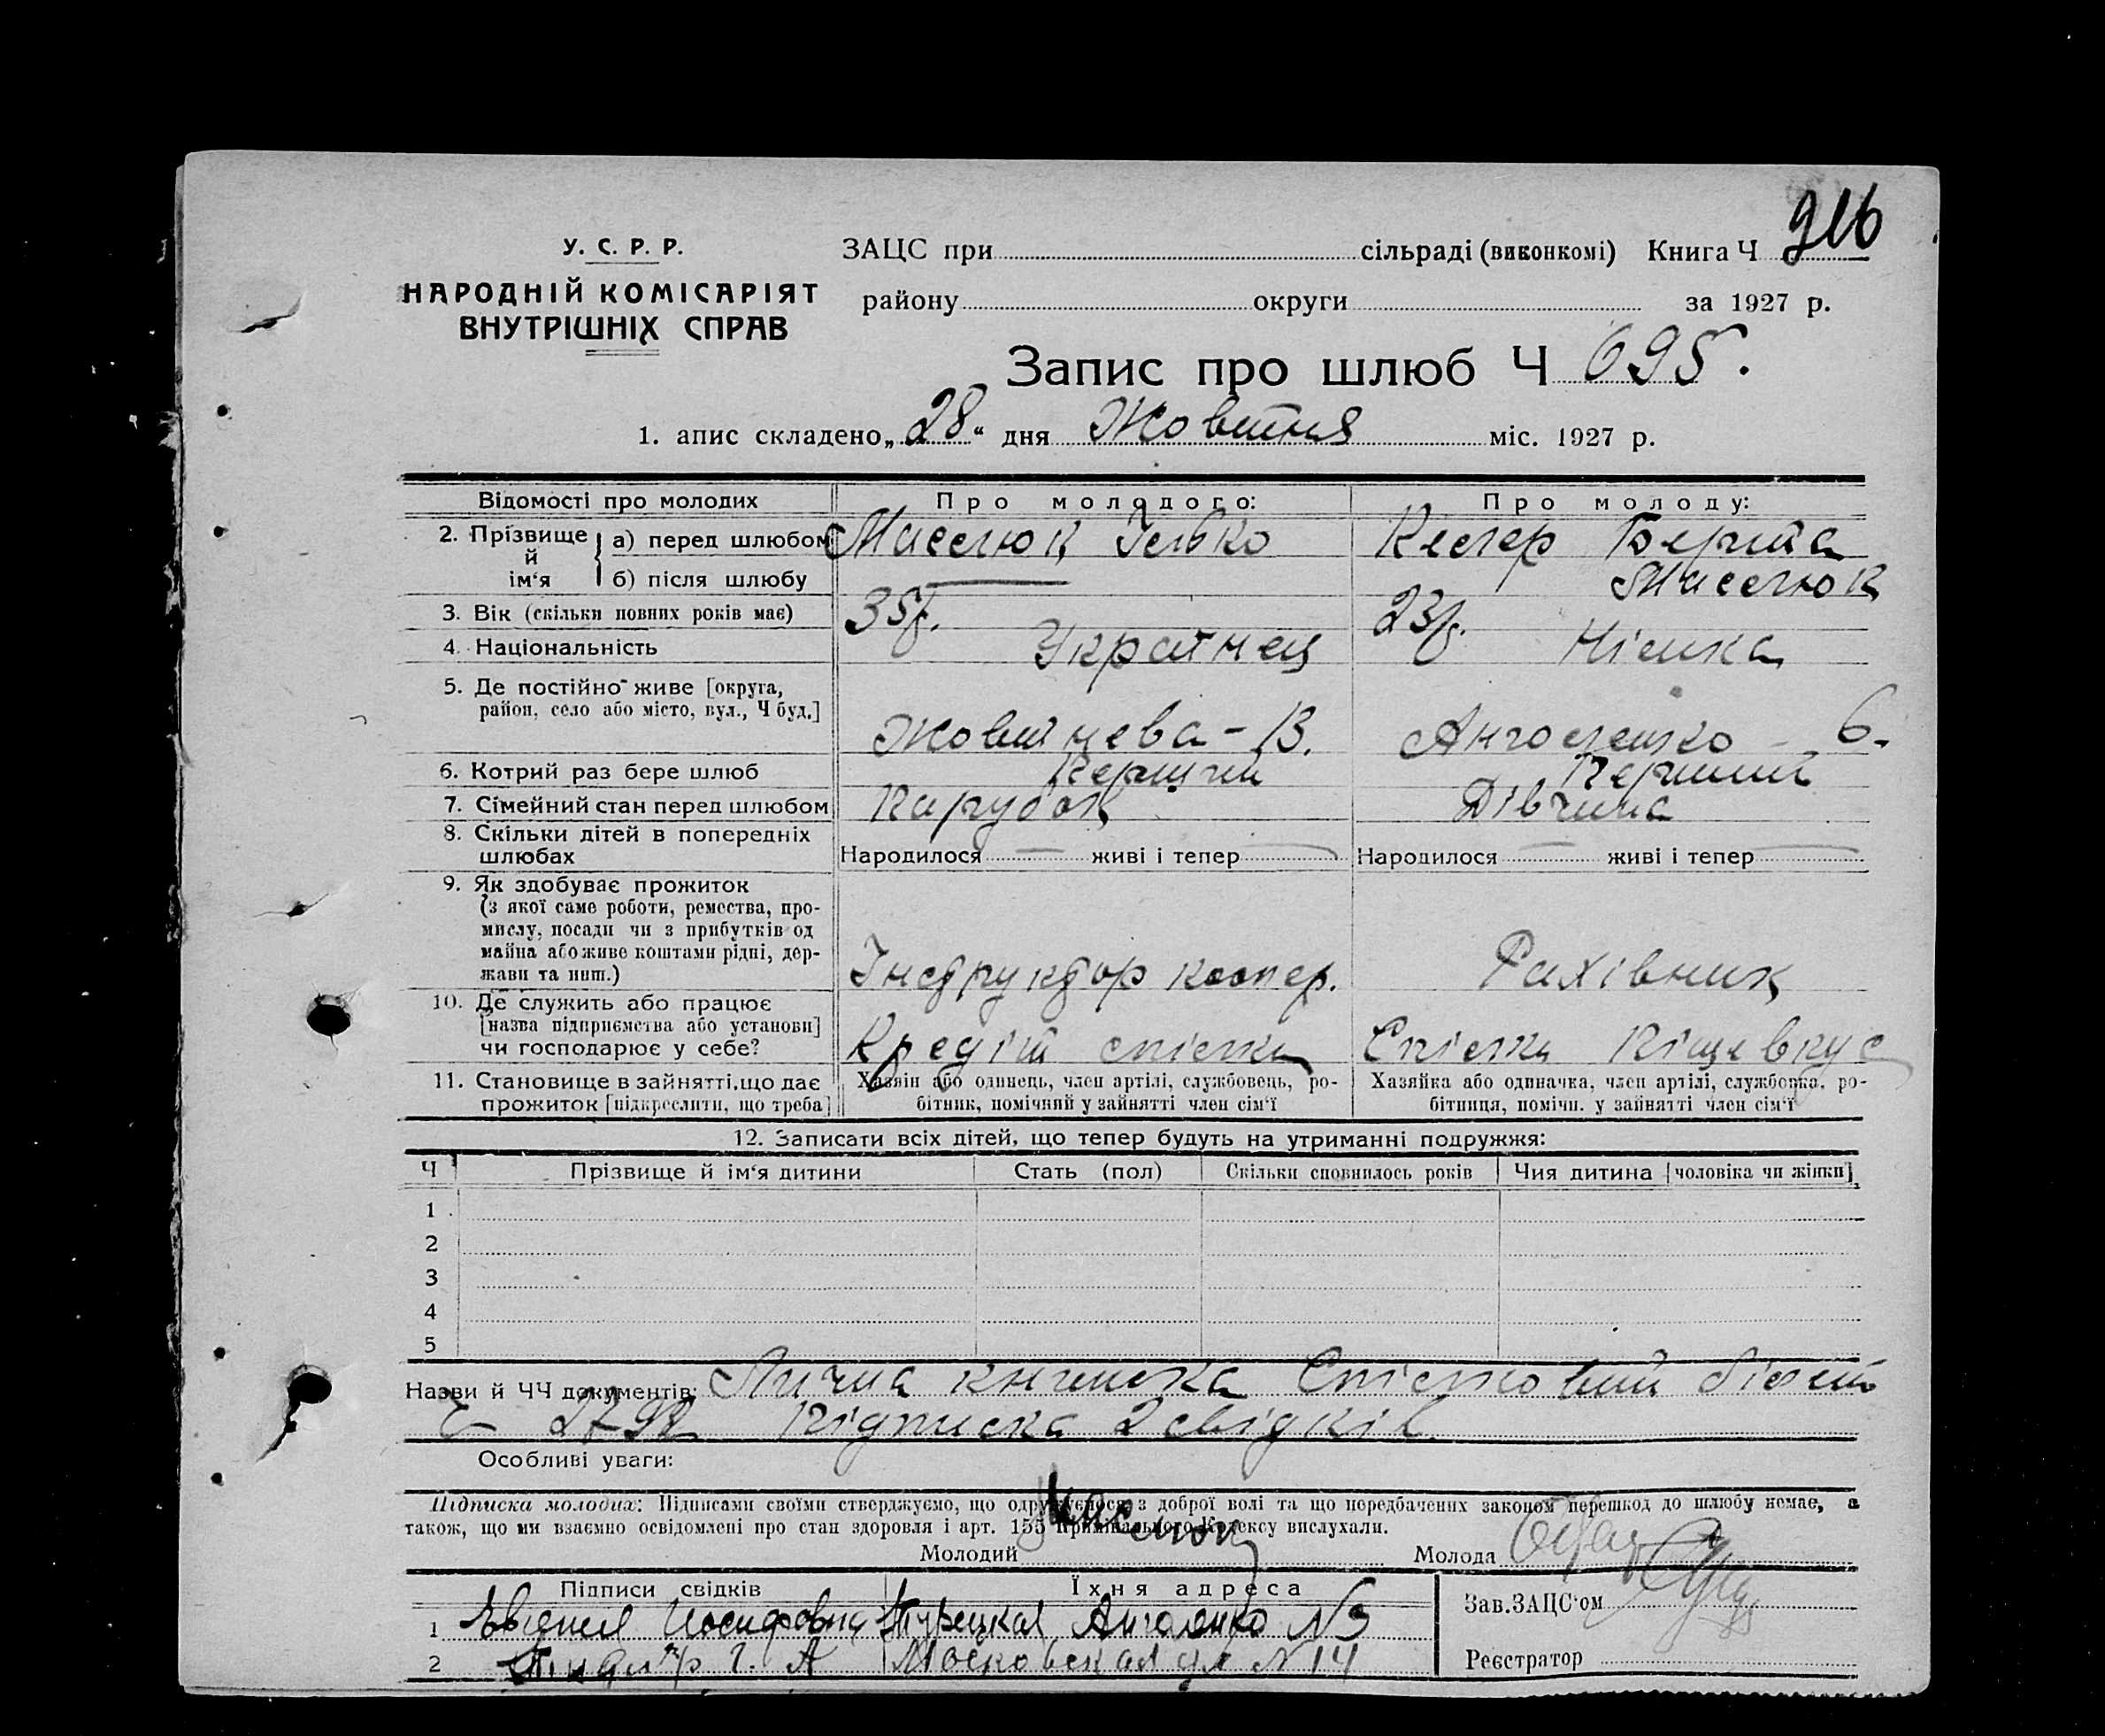 У. С. Р. Р.
НАРОДНІЙ КОМІСАРІЯТ
ВНУТРІШНІХ СПРАВ
ЗАЦС при сільраді (виконкомі) Книга Ч
району округи за 1927 р.
Запис про шлюб Ч 695.
1. апис складено „28“ дня Жовтня міс. 1927 р.
Відомості про молодих Про молодого: Про молоду:
2. Прізвище й ім'я а) перед шлюбом Маселюк Кеслер Берта
б) після шлюбу Маселюк
3. Вік (скільки повних років має) 35р. 23р.
4. Національність Українец Німка
5. Де постійно живе [округа, район, село або місто, вул., Ч буд.] Жовтнева - 13. 6.
6. Котрий раз бере шлюб Перший Перший
7. Сімейний стан перед шлюбом Парубок Дівчина
8. Скільки дітей в попередніх шлюбах Народилося — живі і тепер — Народилося — живі і тепер —
9. Як здобуває прожиток
(з якої саме роботи, ремества, про-
мислу, посади чи з прибутків од
майна або живе коштами рідні, дер-
жави та инш.) Інструктор коопер. Рахівник
10. Де служить або працює
[назва підприємства або установи]
чи господарює у себе? Кредіт спілка Спілка
11. Становище в зайнятті, що дає
прожиток [підкреслити, що треба]
Хазяїн або одинець, член артілі, службовець, ро-
бітник, помічний у зайнятті член сім'ї
Хазяйка або одиначка, член артілі, службовка, ро-
бітниця, помічн. у зайнятті член сім'ї
12. Записати всіх дітей, що тепер будуть на утриманні подружжя:
Ч Прізвище й ім'я дитини Стать (пол) Скільки сповнилось років Чия дитина [чоловіка чи жінки]
1
2
3
4
5
Назви й ЧЧ документів: Лична книжка Спілковий білет
Ч Підписка 2 свідків
Особливі уваги:
Підписка молодих: Підписами своїми стверджуємо, що одружуємося з доброї волі та що передбачених законом перешкод до шлюбу немає, а
також, що ми взаємно освідомлені про стан здоровля і арт. 155 Кримінального Кодексу вислухали.
Молодий Маселюк Молода
Підписи свідків Їхня адреса
1 Иосифовна Турецкая
2 Г. А Московская ул N 14
Зав.ЗАЦС'ом
Реєстратор